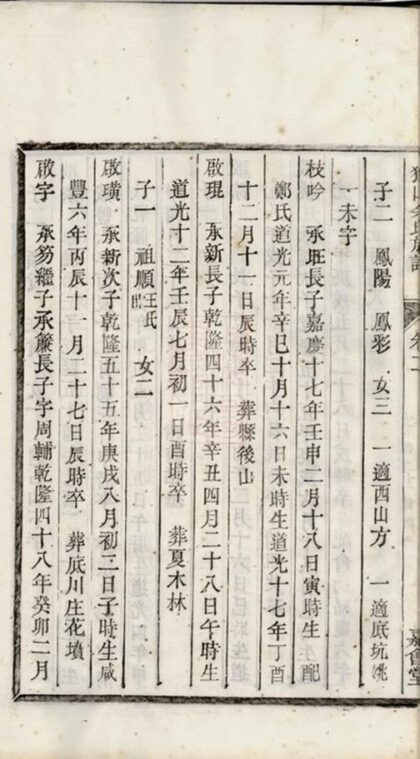 子二　鳳陽　鳳彩　女三　一適西山方　一適底坑姚
一未字
枝吟　承旺長子嘉慶十七年壬申二月十八日寅時生　配
鄭氏道光元年辛巳十月十六日未時生道光十七年丁酉
十二月十一日辰時卒　葬縣後山
啟琨　承新長子乾隆四十六年辛丑四月二十八日午時生
道光十二年壬辰七月初一日酉時卒　葬夏木林
子一　祖順王氏出　女二
啟璜　承新次子乾隆五十五年庚戌八月初三日子時生咸
豐六年丙辰十一月二十七日辰時卒　葬底川庄花墳
啟字　承笏繼子承簾長子字周輔乾隆四十八年癸卯二月